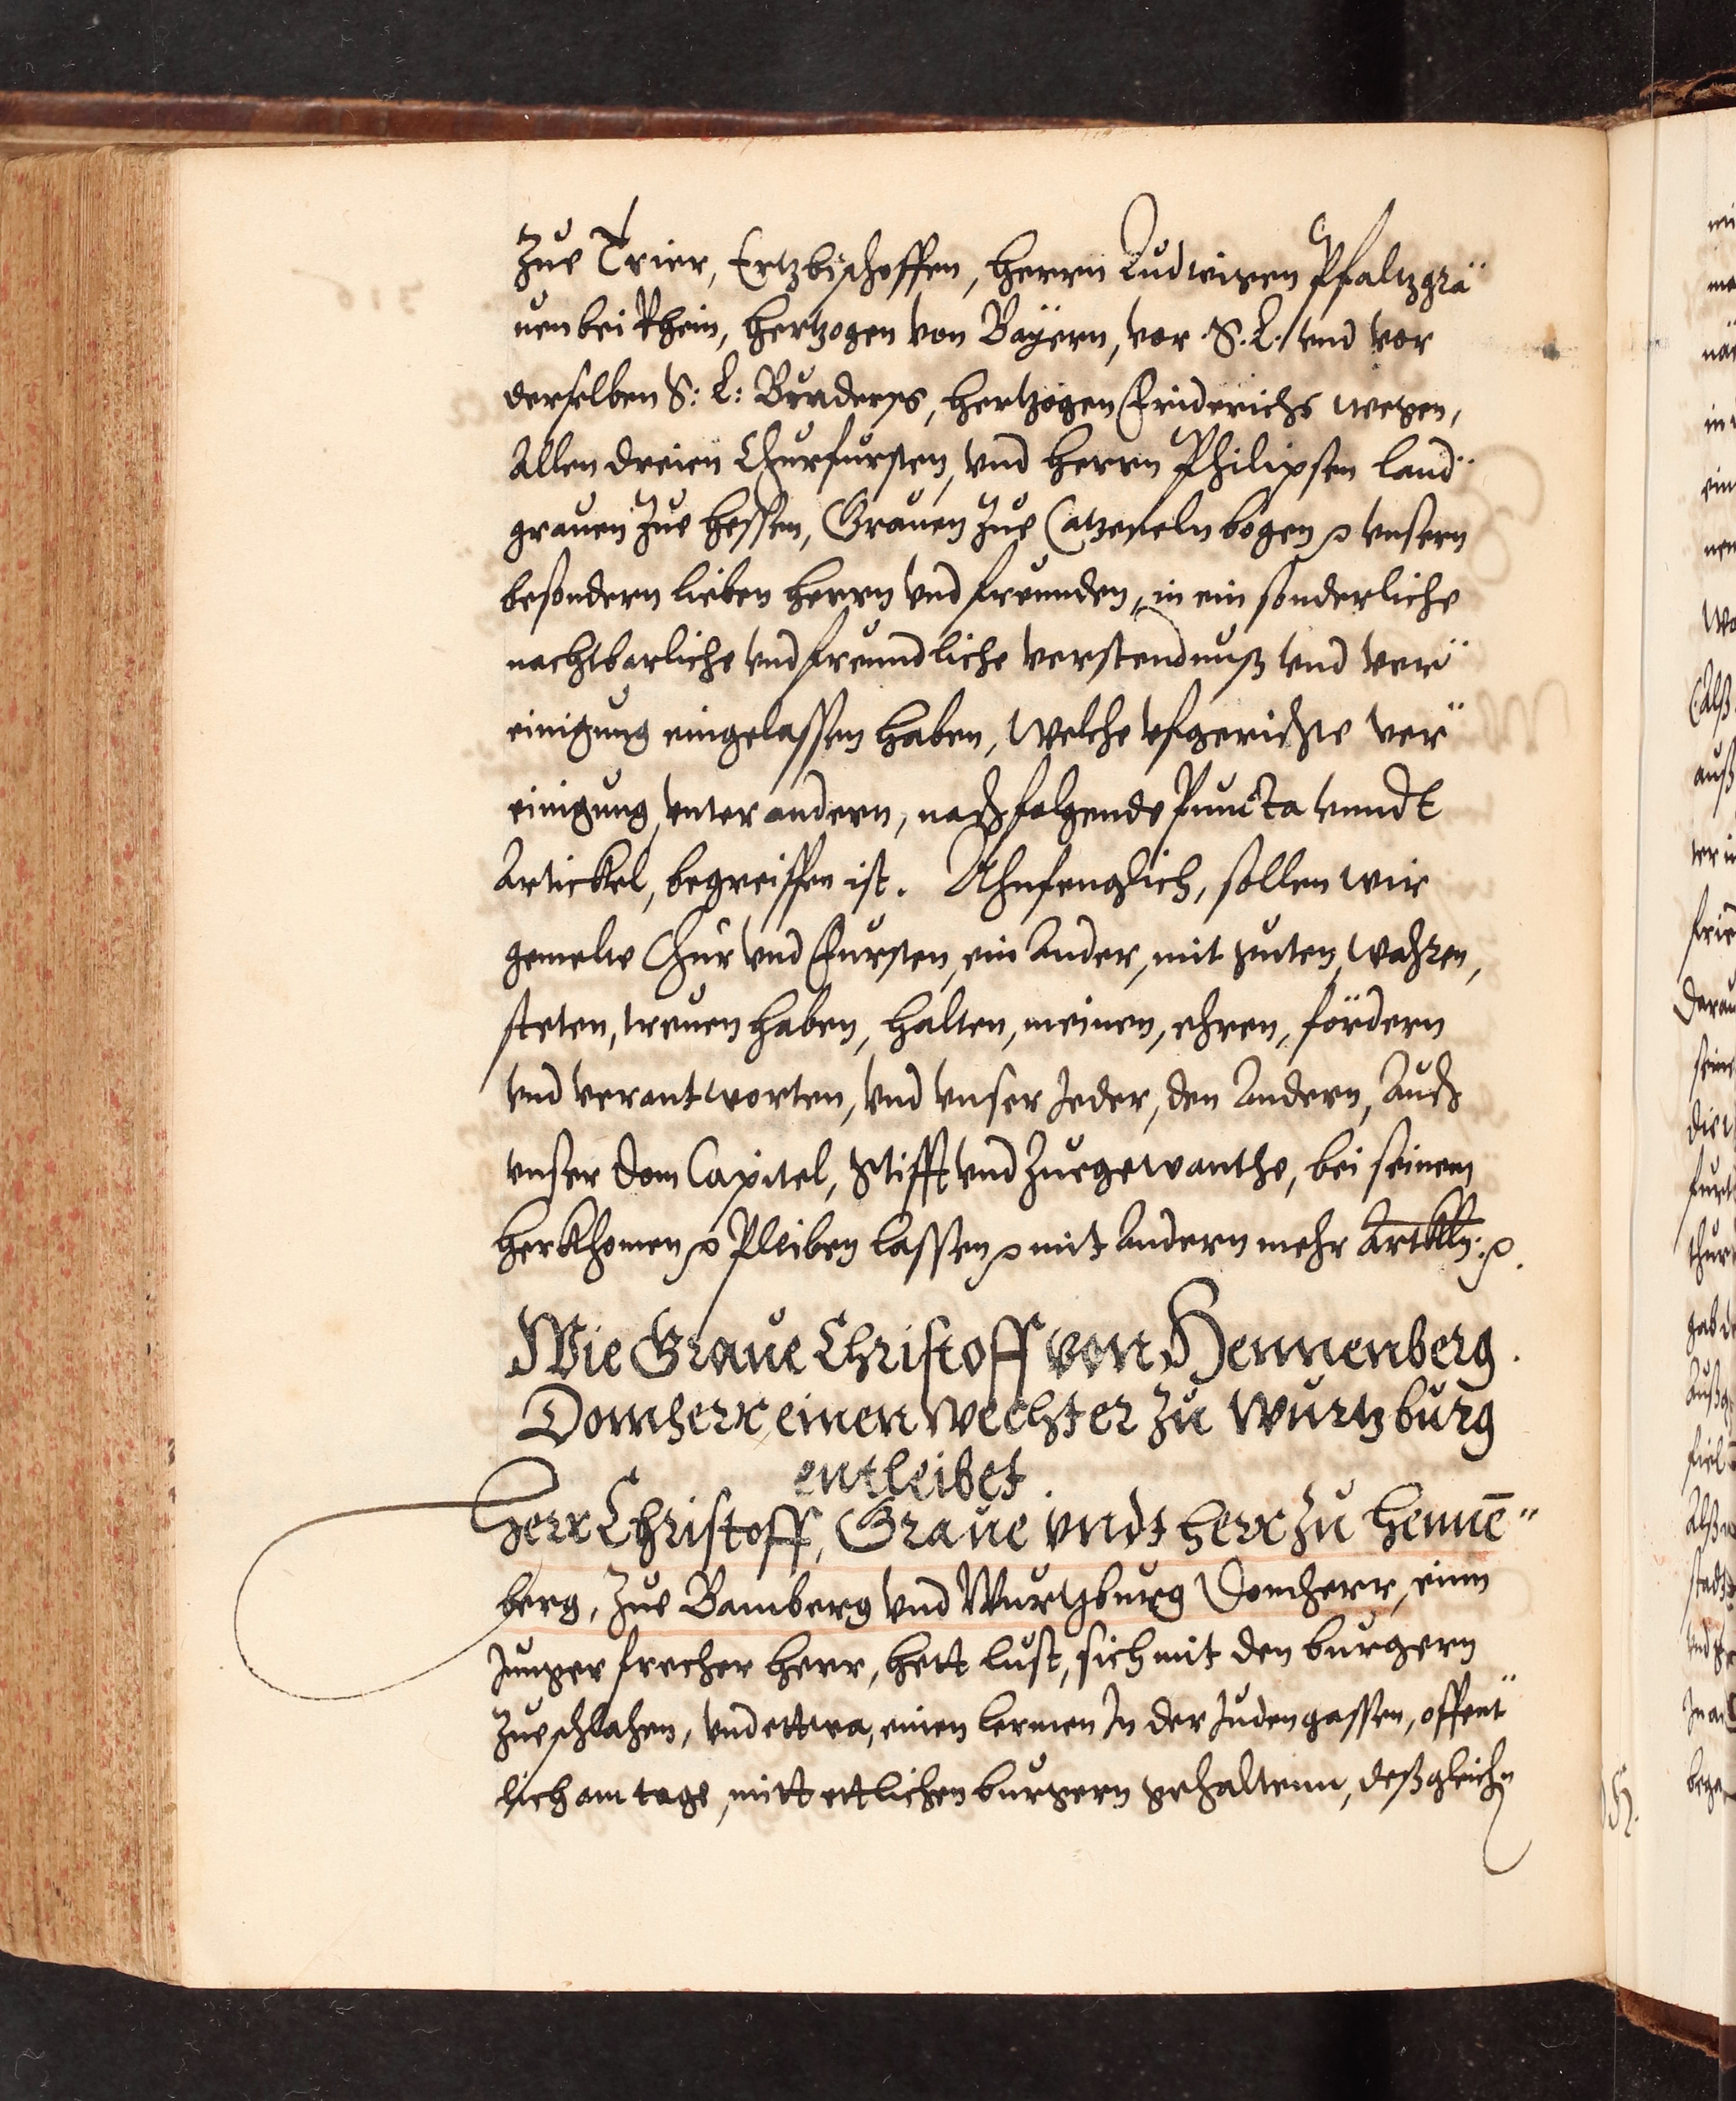 Zue Trier, Ertzbischoffen, herrn Ludwigen Pfaltzgra¨
uen bei Rhein, hertzogen von Bayern, vor S. L. vnd vor
derselben S: L: Bruders, hertzogen Friderichs wegen,
Allen dreien Churfursten, vnd herrn Philipsen land¨
grauen zue hessen, Grauen zue Catzenelnbogen ꝛc vnsern
besondern lieben herrn vnd freunden, in ein sonderliche
nachtbarliche vnd freundliche verstendnuß vnd ver¨
einigung eingelassen haben, Welche vfgerichte ver¨
einigung, vnter andern, nachfolgende Puncta vnndt
Artickel, begreiffen ist. Ahnfenglich, sollen wir
gemelte Chur vnd Fursten, ein Ander, mit guten, wahren,
steten, treuen haben, halten, meinen, ehren, fördern
vnd verantworten, vnd vnser Jeder, den Andern, Auch
vnser Dom Capitel, Stifft vnd Zuegewanthe, bei seinem
herkhomen ꝛc Pleiben lassen ꝛc mit Andern mehr Artklln: ꝛc.
Wie Graue Christoff von Hennenberg.
Domherr, einen Wechter zu Wurtzburg
entleibet.
Herr Christoff, Graue vndt herr zu Hennē"
berg, Zue Bamberg vnd Wurtzburg Domherr, einn
Junger frecher herr, hett lust, sich mit den burgern
zue schlahen, vnd ettwa, einen lermen In der Judengassen, offent¨
lich am tage, mitt ettlichen burgern gehaltenn, deßgleichn